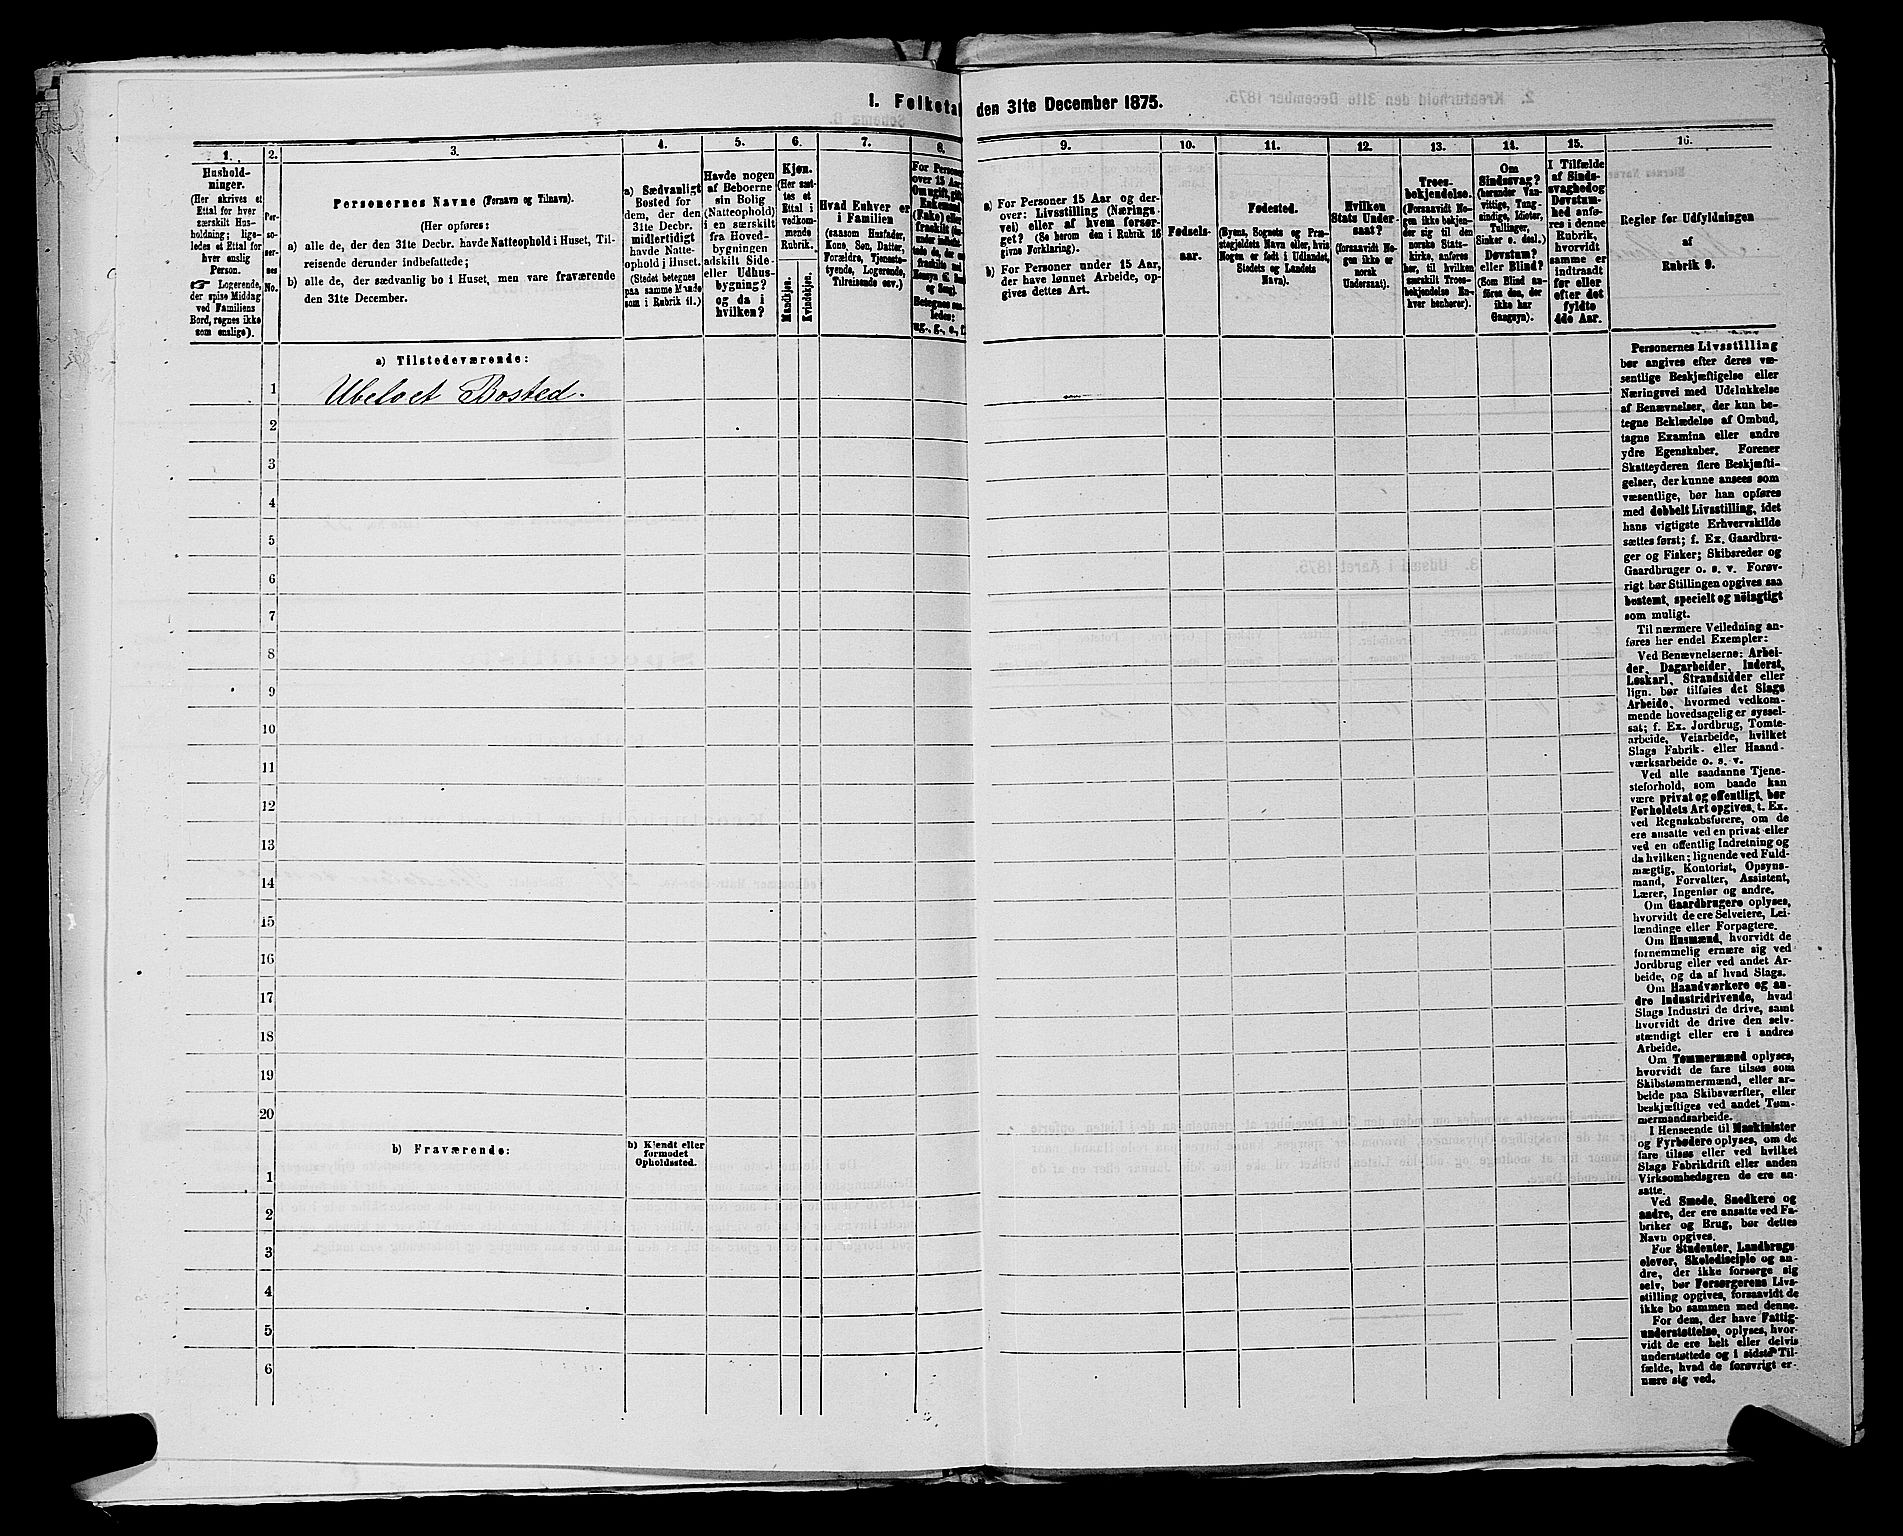 1. Folketal den 31te December 1875.
1.
Hushold-
ninger.
(Her skrives et
Ettal for hver
særskilt Hus-
holdning; lige-
ledes et Ettal for
hver enslig
Person.
☞ Logerende,
der spise Middag
ved Familiens
Bord, regnes ikke
som enslige).
2.
Per-
so-
ner-
nes
No.
3.
Personernes Navne (Fornavn og Tilnavn).
(Her opføres:
a) alle de, der den 31te Decbr. havde Natteophold i Huset, Til-
reisende derunder indbefattede;
b) alle de, der sædvanlig bo i Huset, men vare fraværende
den 31te December.
4.
a) Sædvanligt
Bosted for
dem, der den
31te Decbr.
midlertidigt
havde Natte-
ophold i Huset.
(Stedet betegnes
paa samme Maade
som i Rubrik 11.)
5.
Havde nogen
af Beboerne
sin Bolig
(Natteophold)
i en særskilt
fra Hoved-
bygningen
adskilt Side-
eller Udhus-
bygning?
og da i
hvilken?
6.
Kjøn.
(Her sæt-
tes et
Ettal i
vedkom-
mende
Rubrik.
Mandkjøn.
Kvindekjøn.
7.
Hvad Enhver er
i Familien
(saasom Husfader,
Kone, Søn, Datter,
Forældre, Tjeneste-
tyende, Logerende,
Tilreisende osv.)
8.
For Persone
over 15 Aar
9.
a) For Personer 15 Aar og der-
over: Livsstilling (Nærings-
vei) eller af hvem forsør-
get? (Se herom den i Rubrik 16
givne Forklaring).
b) For Personer under 15 Aar,
der have lønnet Arbeide, op-
gives dettes Art.
10.
Fødsels-
aar.
11.
Fødested.
(Byens, Sognets og Præ-
stegjeldets Navn eller, hvis
Nogen er født i Udlandet,
Stedets og Landets
Navn).
12.
Hvilken
Stats Under-
saat?
(forsaavidt No-
gen ikke er
norsk
Undersaat).
13.
Troes-
bekjendelse.
(Forsaavidt No-
gen ikke bekjen-
der sig til den
norske Stats-
kirke, anføres
her, til hvilken
særskilt Troes-
bekjendelse En-
hver henhører).
14.
Om
Sindssvag?
(herunder Van-
vittige, Tung-
sindige, Idioter,
Tullinger,
Sinker o. desl.)
Døvstum?
eller Blind?
(Som Blind an-
føres den, der
ikke har
Gangsyn).
15.
I Tilfælde
af Sinds-
svaghed og
Døvstum-
hed anfø-
res i denne
Rubrik,
hvorvidt
samme er
indtraadt
før eller
efter det
fyldte
4de Aar.
16.
Regler for Udfyldningen
af
Rubrik 9.
a) Tilstedeværende:
1 Ubeboet Bosted.
2
3
4
5
6
7
8
9
10
11
12
13
14
15
16
17
18
19
20
b) Fraværende:
b) Kjendt eller
formodet
Opholdssted.
1
2
3
4
5
6
Personernes Livsstilling
bør angives efter deres væ-
sentlige Beskjæftigelse eller
Næringsvei med Udelukkelse
af Benævnelser, der kun be-
tegne Beklædelse af Ombud,
tagne Examina eller andre
ydre Egenskaber. Forener
Skatteyderen flere Beskjæfti-
gelser, der kunne ansees som
væsentlige, bør han opføres
med dobbelt Livsstilling, idet
hans vigtigste Erhvervskilde
sættes først; f. Ex. Gaardbru-
ger og Fisker; Skibsreder og
Gaardbruger o. s. v. Forøv-
rigt bør Stillingen opgives saa
bestemt, specielt og nöiagtigt
som muligt.
Til nærmere Veiledning an-
føres her endel Exempler:
Ved Benævnelserne: Arbei-
der, Dagarbeider, Inderst,
Løskarl, Strandsidder eller
lign. bør tilføies det Slags
Arbeide, hvormed vedkom-
mende hovedsagelig er syssel-
sat; f. Ex. Jordbrug, Tomte-
arbeide, Veiarbeide, hvilket
Slags Fabrik- eller Haand-
værksarbeide o. s. v.
Ved alle saadanne Tjene-
steforhold, som baade kan
være privat og offentligt, bør
Forholdets Art opgives, t. Ex.
ved Regnskabsførere, om de
ere ansatte ved en privat eller
ved en offentlig Indretning og
da hvilken; lignende ved Fuld-
mægtig, Kontorist, Opsyns-
mand, Forvalter, Assistent,
Lærer, Ingeniør og andre.
Om Gaardbrugere oplyses,
hvorvidt de ere Selveiere, Lei-
lændinge eller Forpagtere.
Om Husmænd, hvorvidt de
fornemmelig ernære sig ved
Jordbrug eller ved andet Ar-
beide, og da af hvad Slags.
Om Haandværkere og an-
dre Industridrivende, hvad
Slags Industri de drive, samt
hvorvidt de drive den selv-
stændigt eller ere i andres
Arbeide.
Om Tømmermænd oplyses,
hvorvidt de fare tilsøs som
Skibstømmermænd, eller ar-
beide paa Skibsværfter, eller
beskjæftiges ved andet Tøm-
mermandsarbeide.
I Henseende til Maskinister
og Fyrbødere oplyses, om de
fare tilsøs eller ved hvilket
Slags Fabrikdrift eller anden
Virksomhedsgren de ere an-
satte.
Ved Smede, Snedkere og
andre, der ere ansatte ved Fa-
briker og Brug, bør dettes
Navn opgives.
For Studenter, Landbrugs
elever, Skoledisciple og an-
dre, der ikke forsørge sig
selv, bør Forsørgerens Livs-
stilling opgives, forsaavidt de
ikke bo sammen med denne.
For dem, der have Fattig-
understøttelse, oplyses, hvor-
vidt de ere helt eller delvis
understøttede og i sidste Til-
fælde, hvad de forøvrigt er-
nære sig ved.